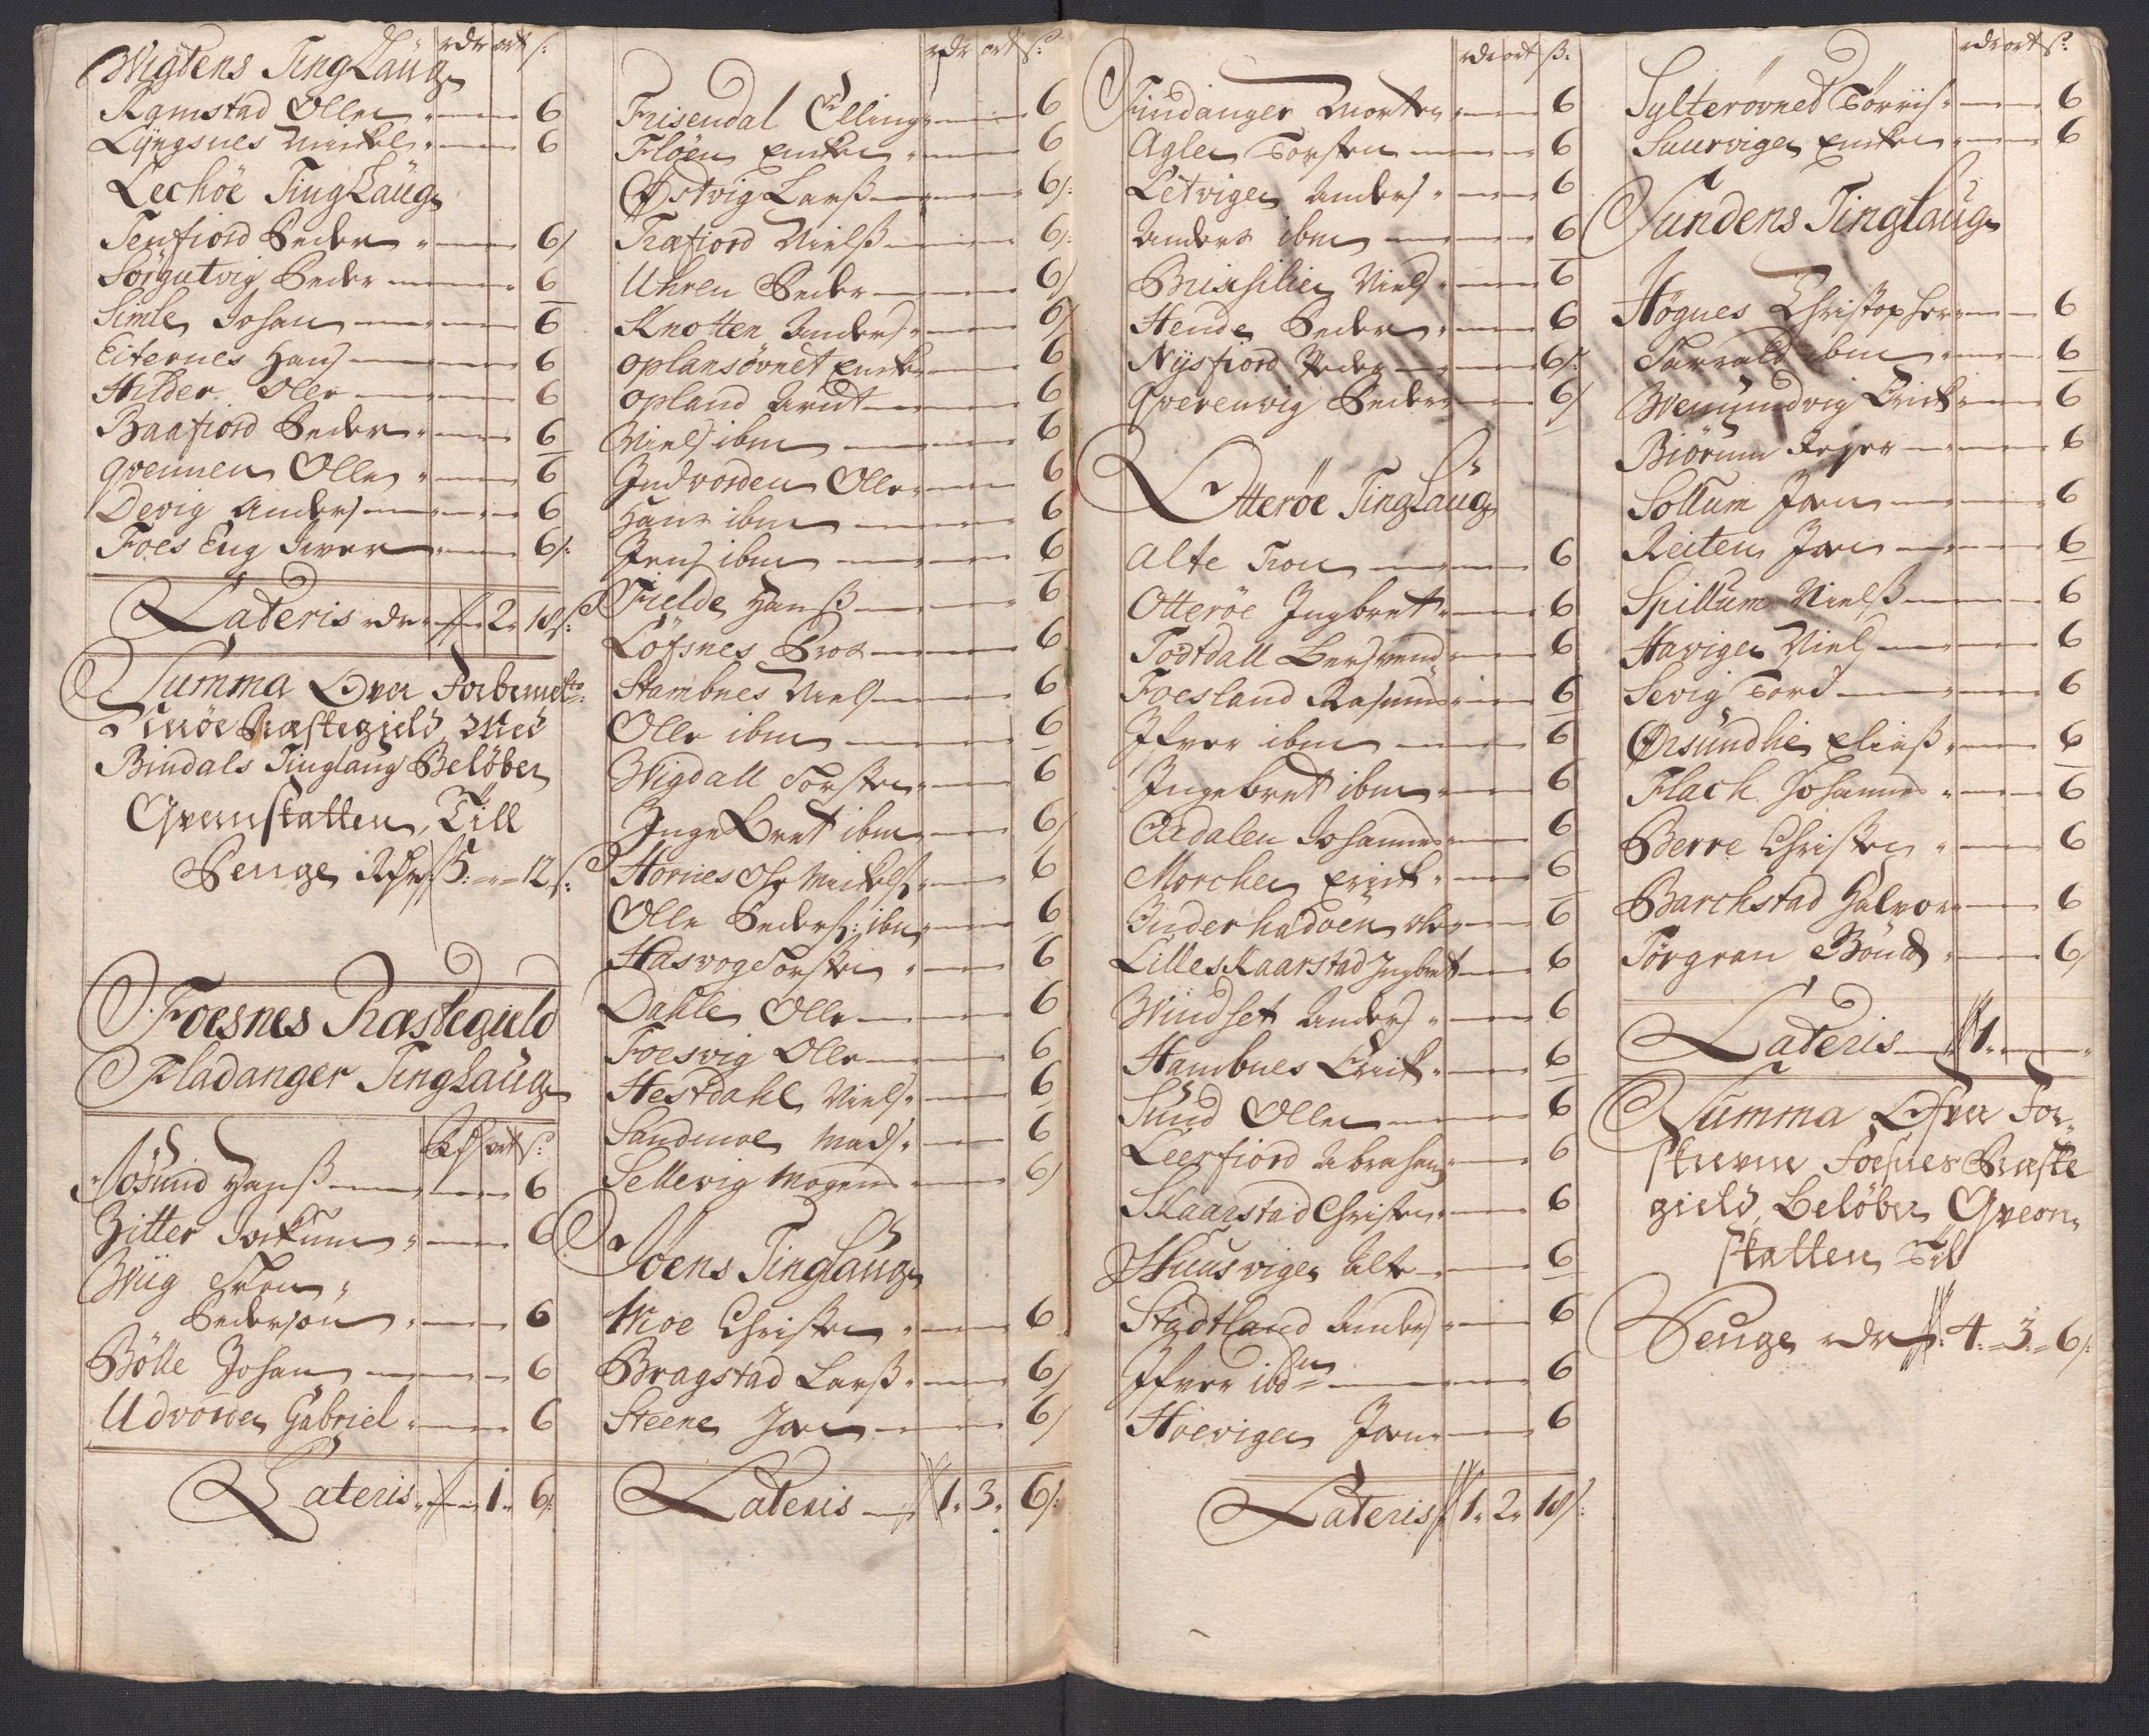 rdr ort ß:
Wigtens TingLaug
Ramstad Olle 6
Lÿngsnes Mickel 6
Lechöe TingLaug
Tenfiord Peder 6/
Sörgutvig Peder 6
Simle Johan 6
Eiternes Hans 6
Hilder Olle 6
Baafiord Peder 6
Qvennen Olle 6
Devig Anders 6
Foes Eng Iver 6/:
Lateris rdr 2 18 ß:
Summa Over Forbemelte
Præstegield Med
Bindals Tinglaug Beløber
Qvernskatten, Till
Penge Rdr 5: - 12 ß:
Foesnes Præstegield
Fladanger TingLaug
Rdr ort ß
Jösund Hanß 6
Zitter Jockum 6
Wiig Tron
Pedersøn 6
Bölle Johan 6
Udvorde Gabriel 6
Lateris 1 6/:
rdr ort ß
Frisendal Elling 6
Fløen Encken 6
Østvig Larß 6/:
Træfiord Nielß 6/:
Uhren Peder 6/
Knotten Anders 6/
Oplansövnet Encken 6
Opland Arnt 6
Niels ibm 6
Indvorden Olle 6
Hans ibm 6
Jens ibm 6
Fielde Hanß 6
Löfsnes 6
Stambnes Niels 6
Olle ibm 6
Wigdall Torsten 6
IngeBret ibm 6/
Hornes Ole Mickelß 6
Olle Pederß: ibm 6
Hasvog Torsten 6
Dahle Olle 6
Foesvig Olle 6
Hestdahl Niels 6
Sandmoe Mads 6
Sellevig Mogens 6/
Joens TingLaug
Moe Christen 6
Bragstad Larß 6/
Steene Jon 6/
Lateris 1 3 6/:
rdr ort ß:
Findanger Morten 6
Agle Torsten 6
Letvigen Anders 6
Anders ibm 6
Niels 6
Hende Peder 6
Nÿsfiord Peder 6/:
Qverenvig Peder 6/
Otteröe TingLaug
Alte Tron 6
Otteröe Ingbret 6
Todtdall Bersvend 6
Foesland Rasmus 6
Ifver ibm 6
Ingebret ibm 6
Ardalen Johannes 6
Morchen Erick 6
Inderhadöen Ole 6
LilleSkaarstad Ingbret 6
Windset Anders 6
Hambnes Erick 6
Sund Olle 6
Leerfiord Abraham 6
Skaarstad Christen 6
Huusvigen 6
Stadtland Anders 6
Ifver ibdm 6
Hoevigen Jon 6
Lateris 1 2 18/:
rdr ort ß
Sylterövned Törris 6
Suurvigen Encken 6
Sundens Tinglaug
Högnes Christopher 6
Tarrald ibm 6
Wemundvig Erick 6
Biörum 6
Sollum Jon 6
Reiten Jon 6
Spillum Nielß 6
Havigen Niels 6
Sevig Tord 6
Örsundlie Eliaß 6
Flach Johannes 6
Berre Christen 6
Barchstad Halvor 6
Törgran Bendt 6/
Lateris 1
Summa Ofver For-
skrevne Foesnes Præste
gield, Beløber Qvern-
skatten Til
Penge rdr 4: 3: 6/: